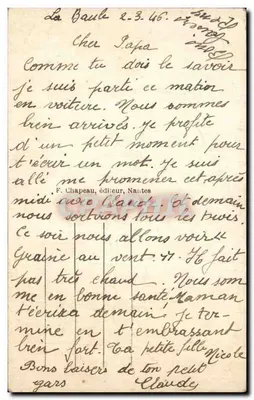 La Baule 2-3-46
Cher Papa
Comme tu dois le savoir
je suis parti ce matin
en voiture. Nous sommes
bien arrivés. je profite
d'un petit moment pour
t'écrir un mot. Je suis
allé me promener cet après
F. Chapeau, éditeur, Nantes
midi avec Claude et demain
nous sortirons tous les trois.
Ce soir nous allons voir "
Graine au vent ". Il fait
pas très chaud. Nous som
me en bonne santé. Maman
t'écrira demain. je ter-
mine en t'embrassant
bien fort. Ta petite fille
Nicole
Bons baisers de ton petit
gars Claude